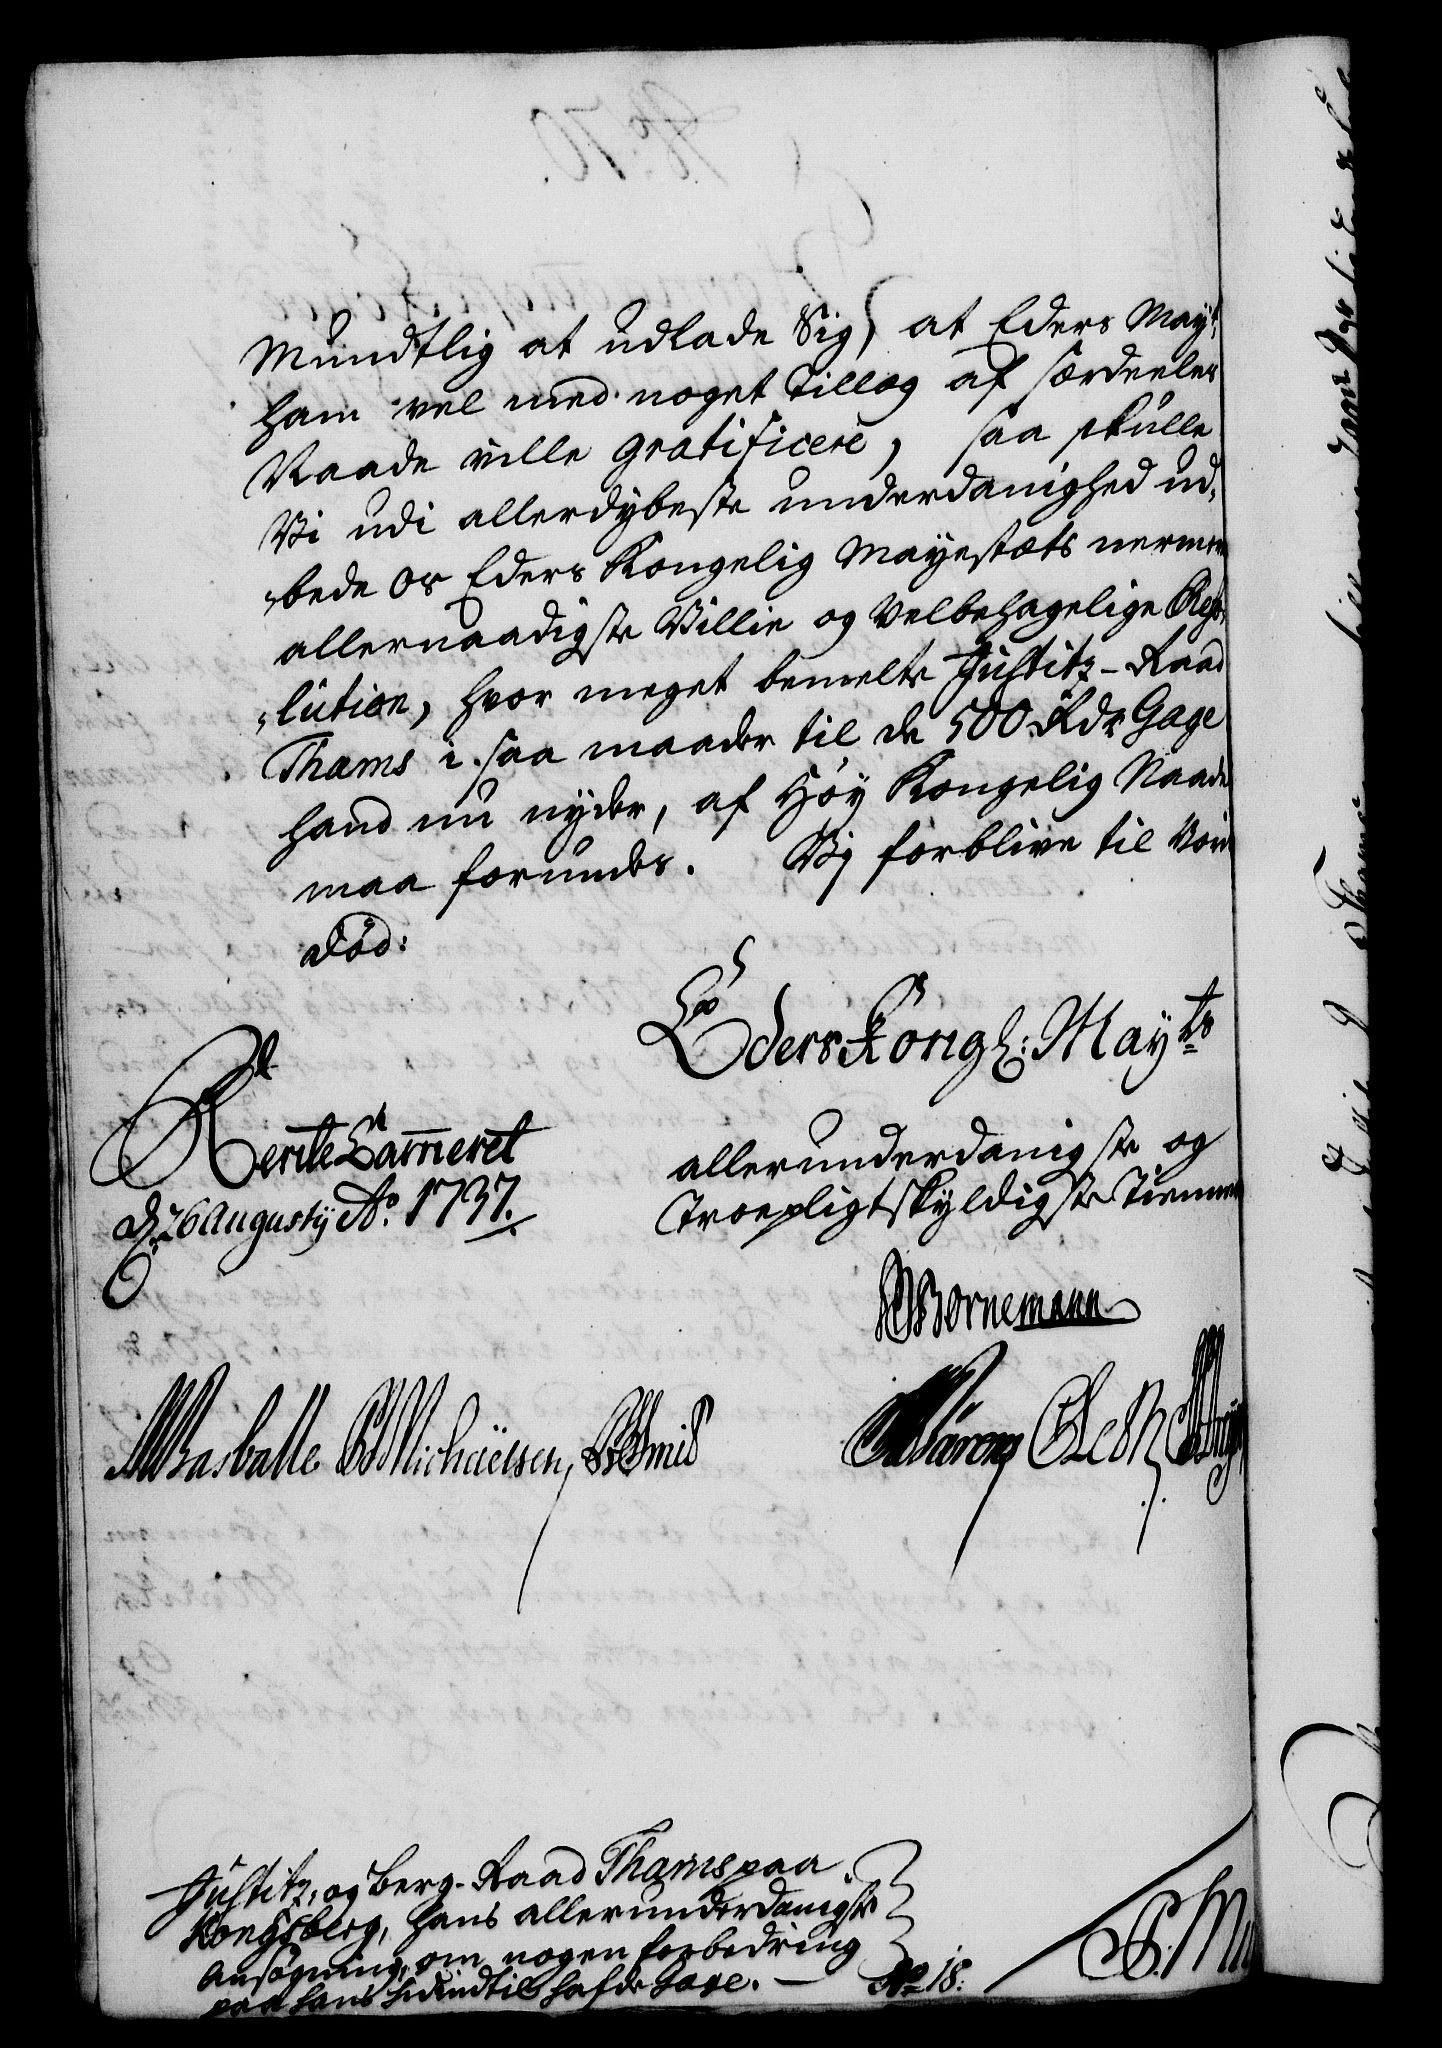 Mundtlig at udlade Sig, at Eders Mayt:
ham vel med noget Tillæg af særdeeles
Naade ville gratificere, saa skulle
Vi udi allerdybeste underdanighed ud,
,bede os Eders Kongelig Mayestæts nermere
allernaadigste Villie og Velbehagelige Reso,
,lution, hvor meget bemelte Justitz-Raad
Thams i saa maader til de 500 Rdr Gage
hand nu nyder, af Høy Kongelig Naade
maa forundes. Vij forblive til Voris
død:
Eders Kongl: Mayts
Rente Cammeret
d. 26 Augustij Ao. 1737.
allerunderdanigste og
Troepligtskyldigste Tiennere
Bornemann
Basballe Michaelsen,
Justitz, og Berg-Raad Thams paa
Kongsberg, hans allerunderdanigste
Ansøgning, om nogen forbedring
paa hans hidindtil hafde Gage. —
No 18: